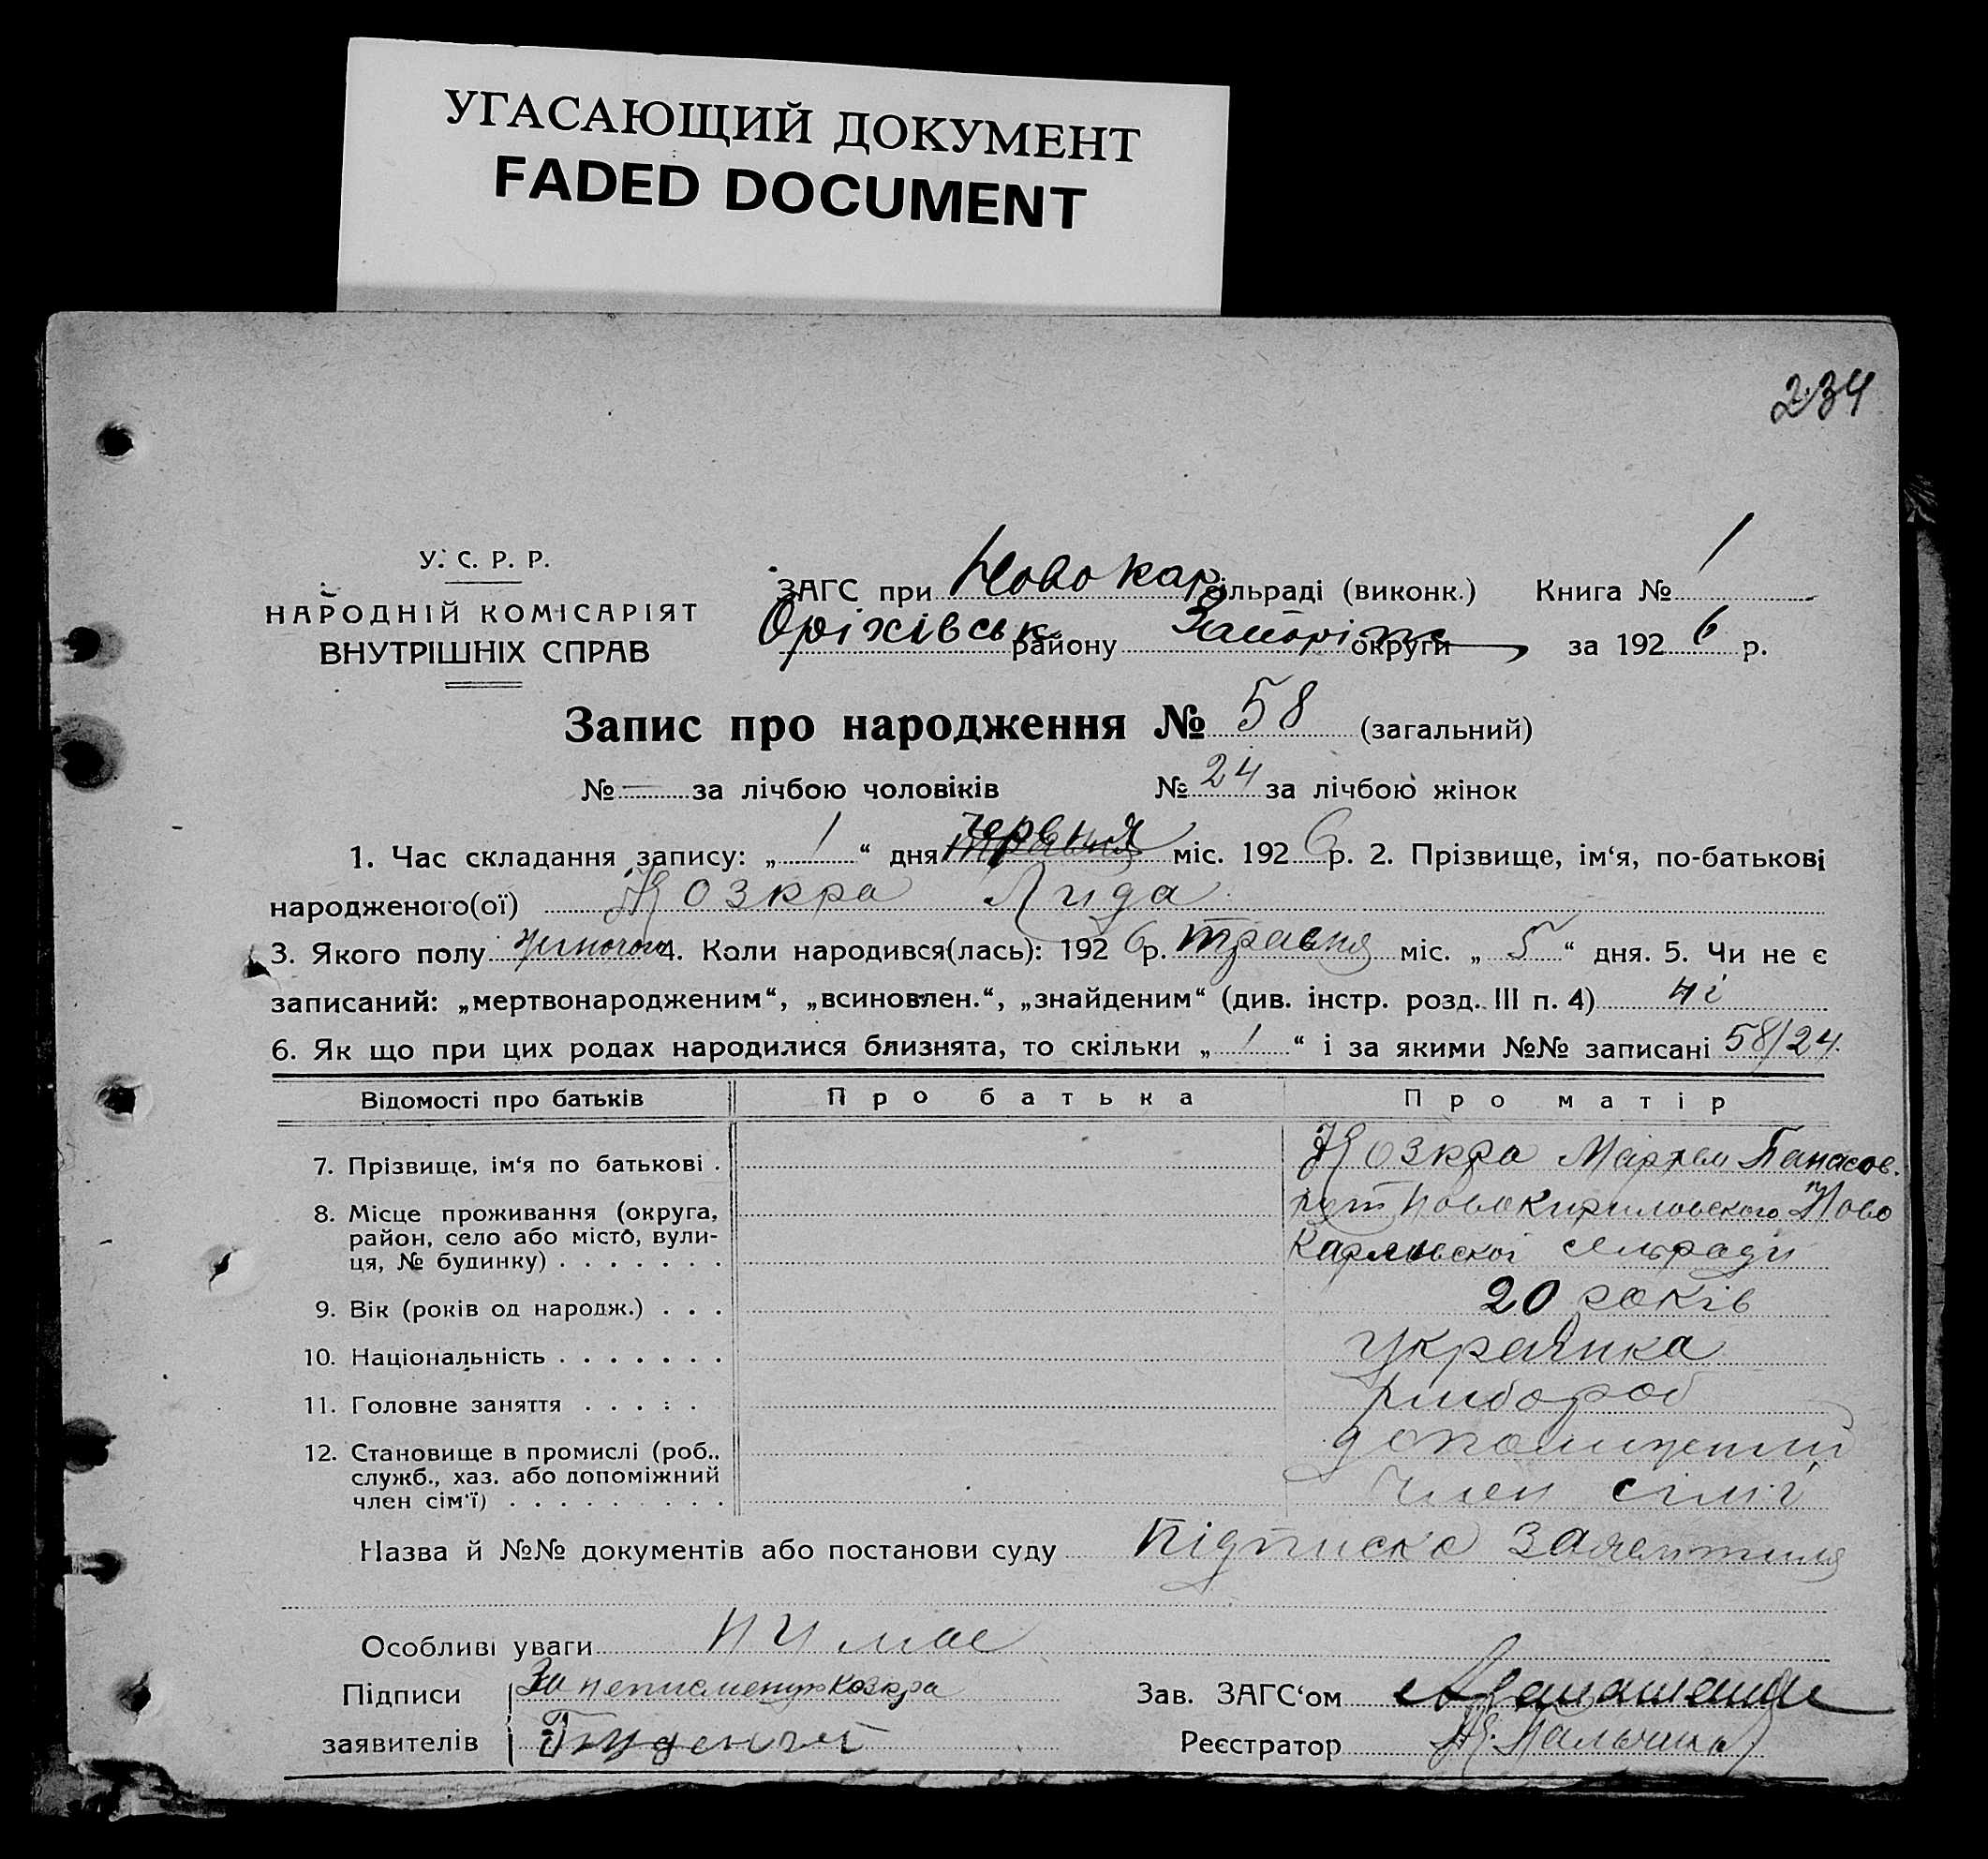 УГАСАЮЩИЙ ДОКУМЕНТ
FADED DOCUMENT
234
У. С. Р. Р.
НАРОДНІЙ КОМІСАРІЯТ
ВНУТРІШНІХ СПРАВ
ЗАГС при Новокар сільраді (виконк.) Книга № 1
Оріхівськ району Запоріж округи за 1926 р.
Запис про народження № 58 (загальний)
№ — за лічбою чоловіків № 24 за лічбою жінок
1. Час складання запису: „ 1 “ дня червня міс. 1926 р. 2. Прізвище, ім‘я, по-батькові
народженого(ої) Козкра Лида
3. Якого полу жіночого 4. Коли народився(лась): 1926 р. травня міс. „ 5 “ дня. 5. Чи не є
записаний: „мертвонародженим“, „всиновлен.“, „знайденим“ (див. інстр. розд. III п. 4) ні
6. Як що при цих родах народилися близнята, то скільки „ 1 “ і за якими №№ записані 58/24.
Відомості про батьків Про батька Про матір
7. Прізвище, ім‘я по батькові . Козкра Панасов.
8. Місце проживання (округа, Новокириловского Ново
район, село або місто, вули- Карловскоі сільради
ця, № будинку) . . . . . . .
9. Вік (років од народж.) . . . 20 років
10. Національність . . . . . . . украінка
11. Головне заняття . . . . . хлибороб
12. Становище в промислі (роб., допоміжний
служб., хаз. або допоміжний
член сім‘ї) . . . . . . . . . член сіміі
Назва й №№ документів або постанови суду Підписка заявителя
Особливі уваги ни має
Підписи За неписьменну Козкра Зав. ЗАГС‘ом
заявителів Реєстратор